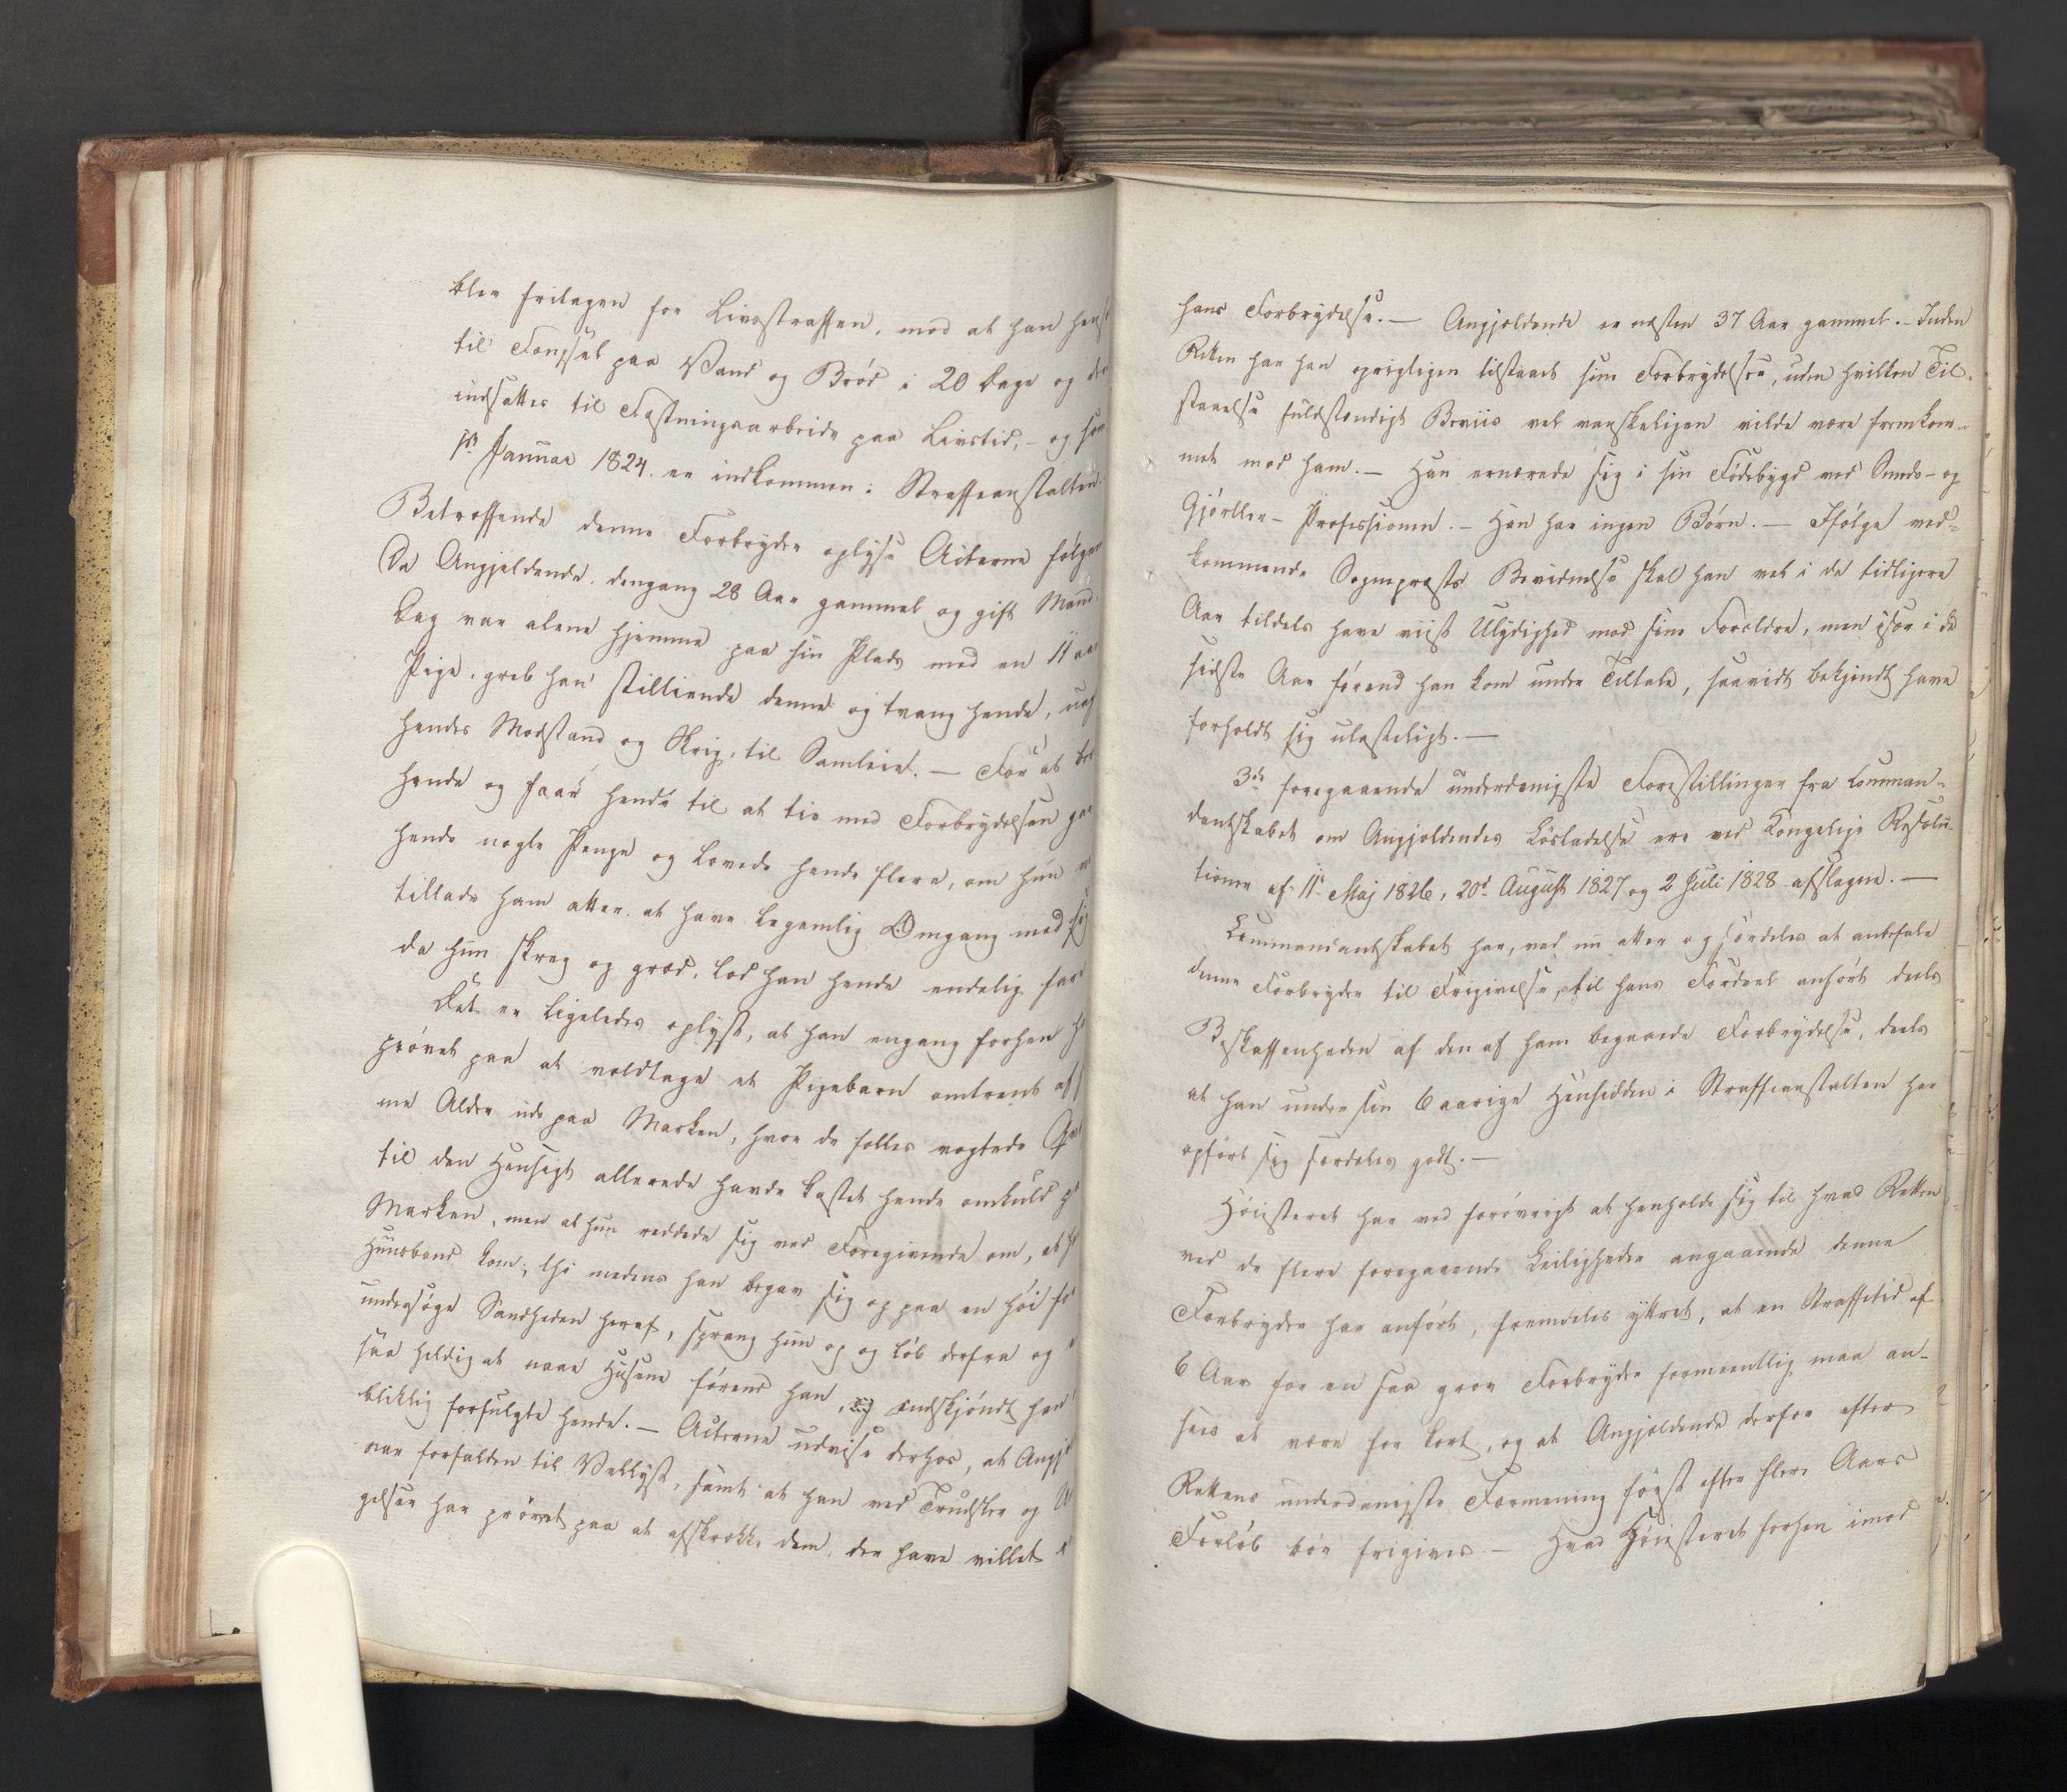 blev fritagen for Livsstraffen, mod at han hens
til Fængsel paa Vand og Brød i 20 Dage og der
indsættes til Fæstningsarbeide paa Livstid, – og som
1ste Januar 1824 er indkommen i Straffeanstalten.
Betræffende denne Forbryder oplyse Acterne følgen
Da Angjeldende, dengang 28 Aar gammel og gift Mand,
Dag var alene hjemme paa sin Plads med en 11 aar
Pige, greb han stiltiende denne og tvang hende, uag
hendes Modstand og Skrig, til Samleie. – For at be
hende og faae hende til at tie med Forbrydelsen gav
hende nogle Penge og lovede hende flere, om hun v
tillade ham atter at have legemlig Omgang med sig
da hun skreg og græd, lod han hende endelig fare
Det er ligeledes oplyst, at han engang forhen h
prøvet paa at voldtage et Pigebarn omtrent af s
me Alder ude paa Marken, hvor de fælles vogtede
til den Hensigt allerede havde kastet hende omkuld p
Marken, men at hun reddede sig ved Foregivende om, at h
Huusbond kom; thi medens han begav sig op paa en Høi fo
undersøge Sandheden heraf, sprang hun op og løb derfra og
saa heldig at naae Husene førend han, endskjøndt han
bliklig forfulgte hende. – Acterne udvise derhos, at Angj
var forfalden til Vellyst, samt at han ved Trudsler og
gelser har prøvet paa at afskrække dem, der have villet
hans Forbrydelse. – Angjeldende er næsten 37 Aar gammel. – Inden
Retten har han oprigtigen tilstaaet sine Forbrydelser, uden hvilken Til-
staaelse fuldstændigt Beviis vel vanskeligen vilde være fremkom-
met mod ham. – Han ernærede sig i sin Fødebygd ved Smede- og
Gjørtler-Professionen. – Han har ingen Børn. – Ifølge ved-
kommende Sognepræsts Bevidnelse skal han vel i de tidligere
Aar tildels have viist Ulydighed mod sine Forældre, men især i de
sidste Aar førend han kom under Tiltale, saavidt bekjendt have
forholdt sig ulasteligt. –
3de foregaaende underdanigste Forestillinger fra Comman-
dantskabet om Angjeldendes Løsladelse ere ved Kongelige Resolu-
tioner af 11te Maj 1826, 20de August 1827 og 2 Juli 1828 afslagne. –
Commandantskabet har, ved nu atter og særdeles at anbefale
denne Forbryder til Frigivelse, til hans Fordeel anført deels
Beskaffenheden af den af ham begaaede Forbrydelse, deels
at han under sin 6 aarige Hensidden i Straffeanstalten har
opført sig særdeles godt. –
Høiesteret har ved forøvrigt at henholde sig til hvad Retten
ved de flere foregaaende Leiligheder angaaende denne
Forbryder har anført, fremdeles yttret, at en Straffetid af
6 Aar for en saa grov Forbryder formeentlig maa an-
sees at være for kort, og at Angjeldende derfor efter
Rettens underdanigste Formening først efter flere Aars
Forløb bør frigives. – Hvad Høiesteret forhen imod